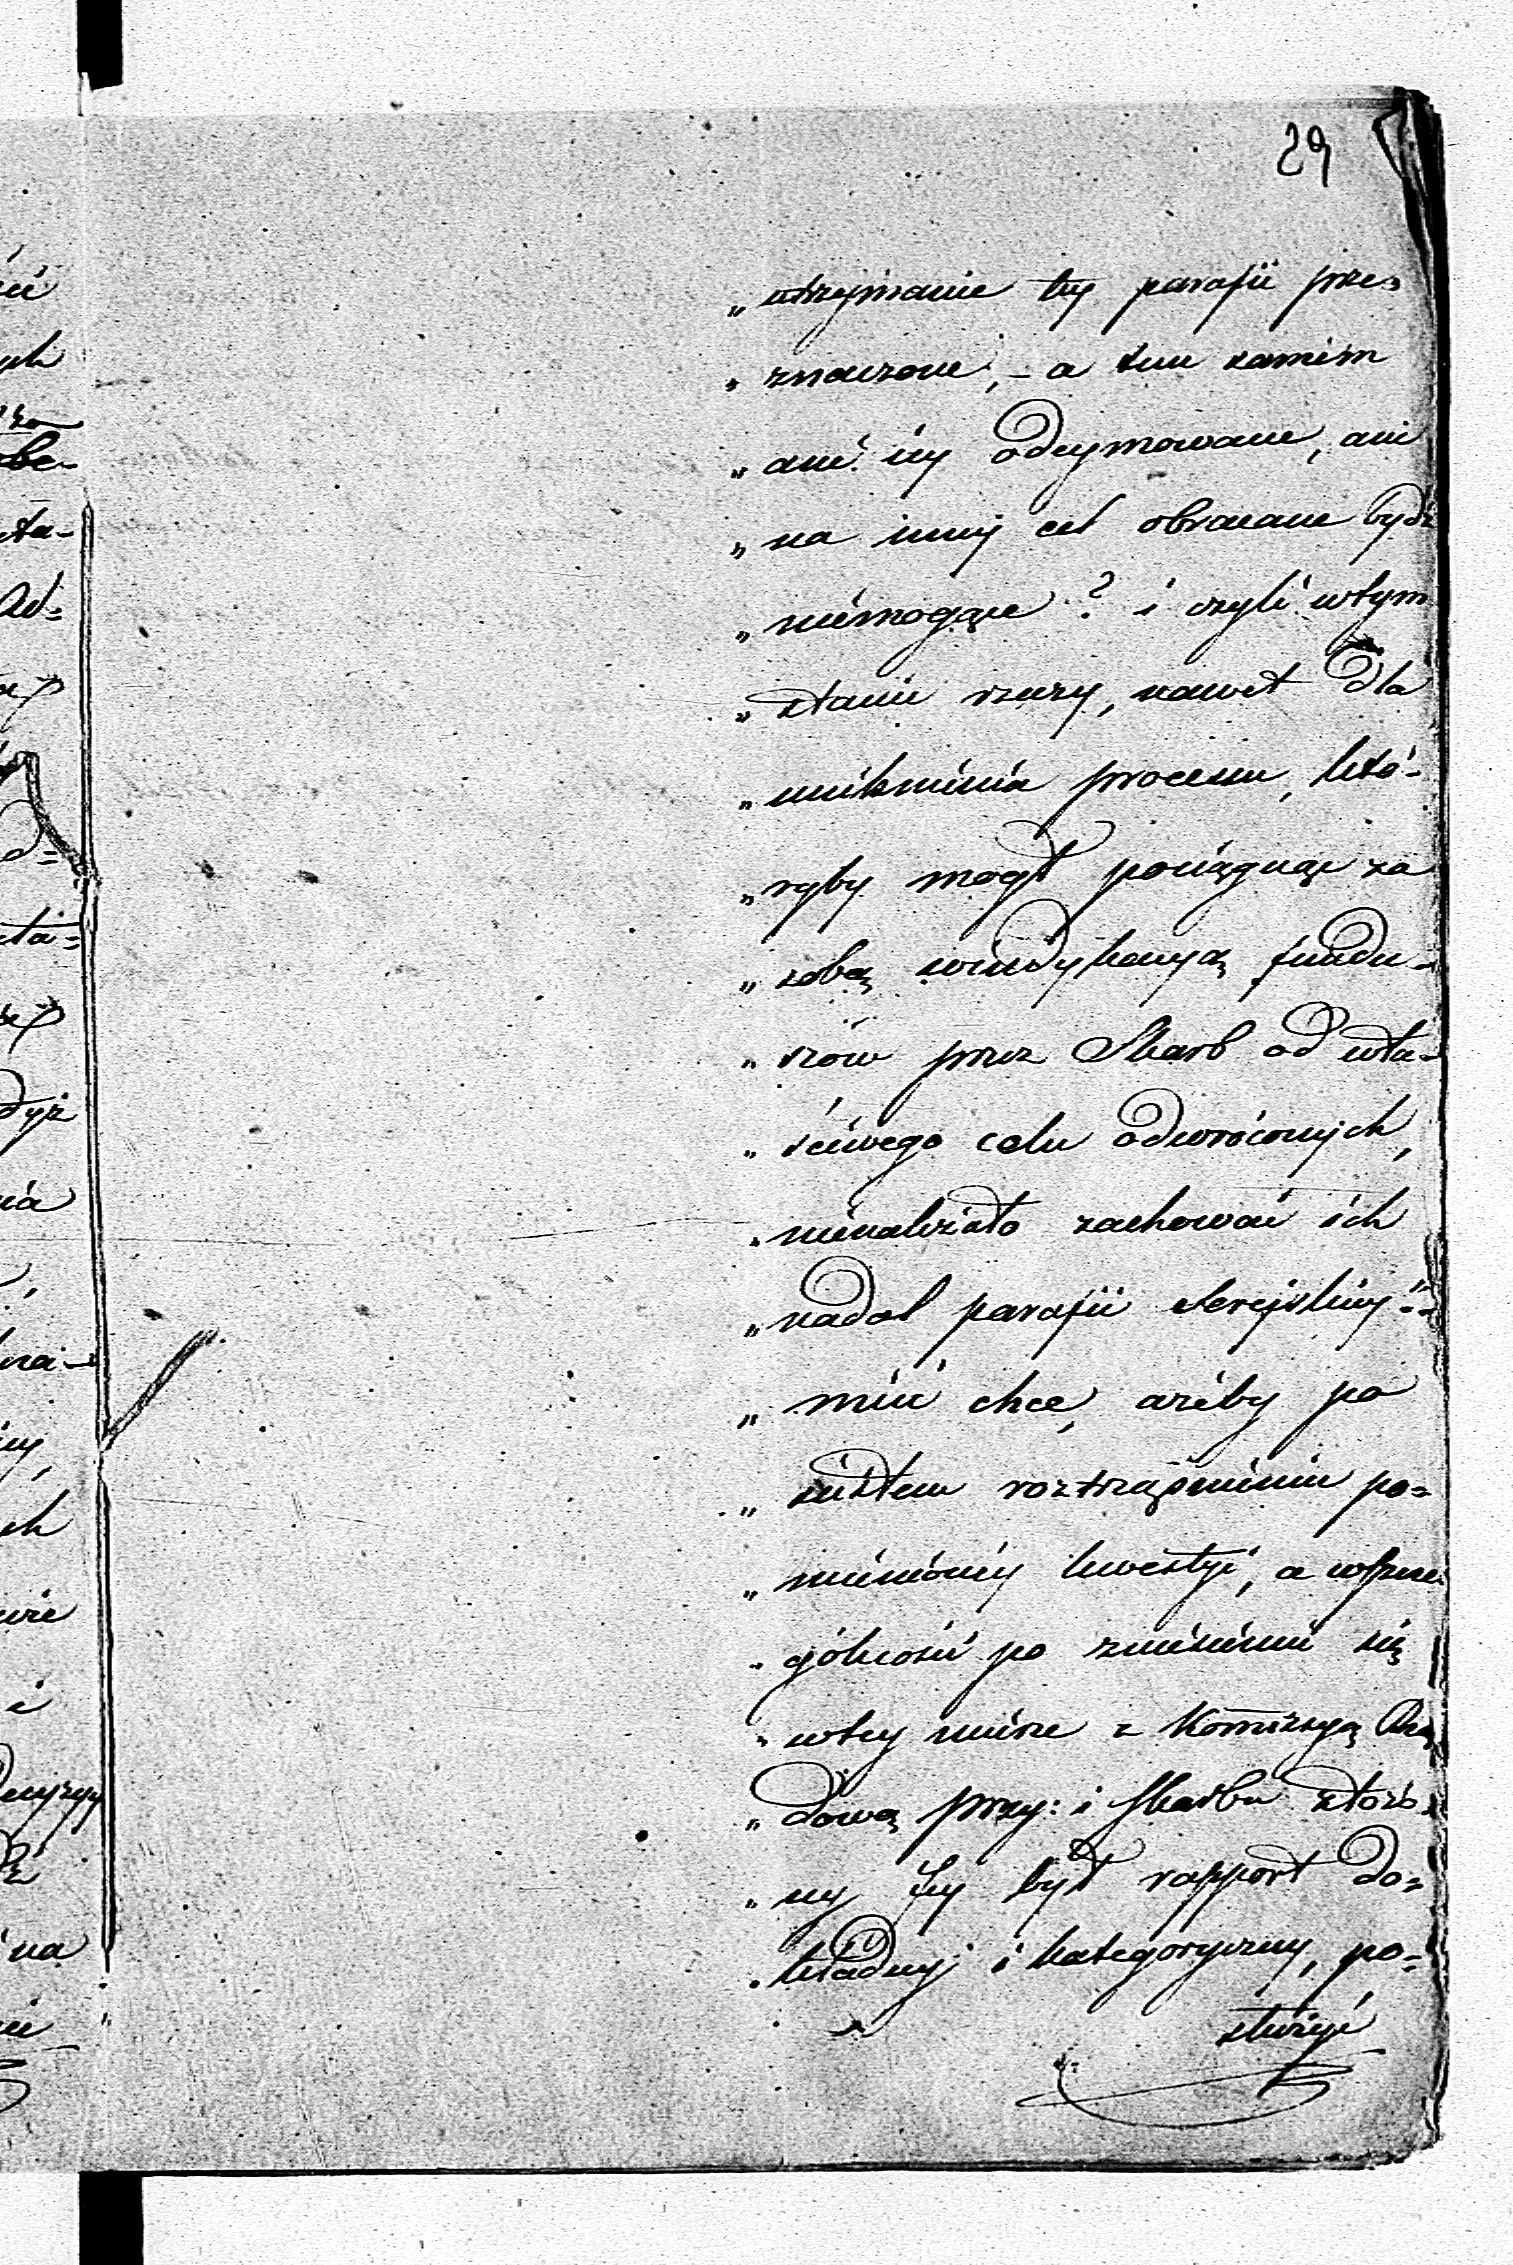 29
„ utrzymanie tey parafii prze-
„ znaczone, – a tem samém
„ ani iéy odeymowane, ani
„ na inny cel obracane bydź
„ niemogące? i czyli wtym
„ stanie rzeczy, nawet dla
„ uniknienia processu, któ-
„ ryby mogł pociągnąć za
„ sobą windykacyą fundu-
„ szów przez Skarb od wła-
„ ściwego celu odwróconych,
„ nienależało zachować ich
„ nadal parafii Serejskiey"
„ mieć chce, ażeby po
„ ścisłem roztrząśnieniu po-
„ mienioney kwestyi, a wszcze-
„ gólności po zniesieniu się
„ wtey mierze z Kommissyą Rzą
„ dową przy: i Skarbu złożo-
„ ny Jey był rapport do-
„ kładny i kategoryczny, po-
służyć